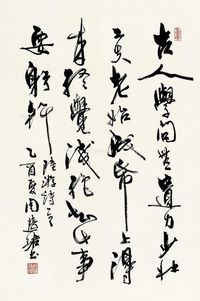 古人學問無遺力少壯
工夫老始成紙上得
来終覺淺絕知此事
要躬行 陸游詩一首
乙酉夏周